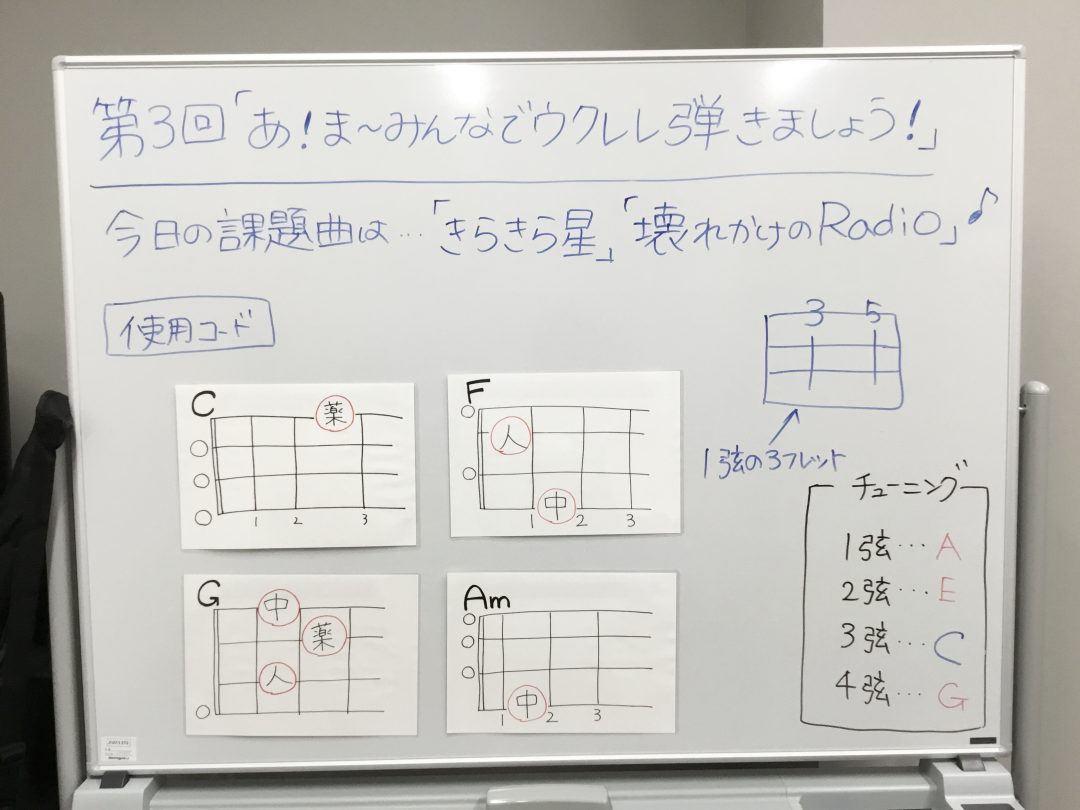 第3回「あ!ま〜みんなでウクレレ弾きましょう!」
今日の課題曲は…「きらきら星」「壊れかけのRadio」♪
使用コード
3 5
1弦の3フレット
C
薬
1 2 3
F
人
中
1 2 3
G
中
薬
人
Am
中
1 2 3
チューニング
1弦…A
2弦…E
3弦…C
4弦…G